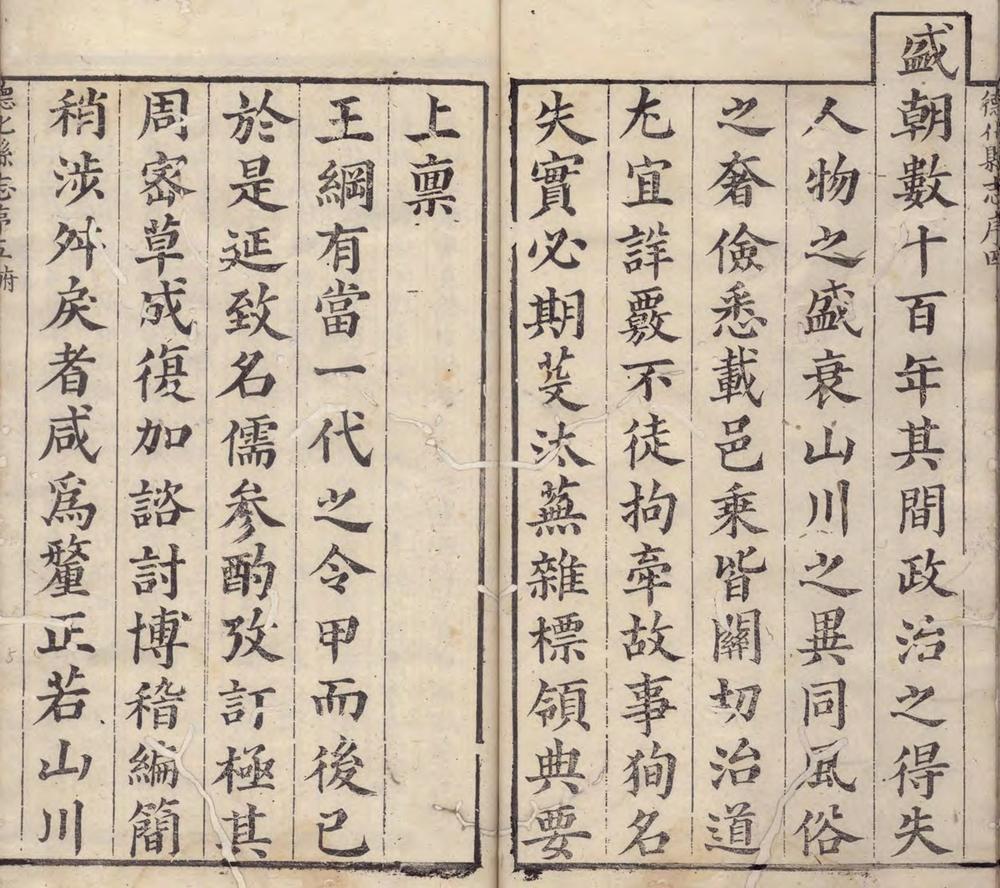 德化縣志序四
盛朝數十百年其間政治之得失
人物之盛衰山川之異同風俗
之奢儉悉載邑乘皆關切治道
尤宜詳覈不徒拘牽故事狥名
失實必期芟汰蕪雜標領典要
上禀
王綱有當一代之令甲而後已
於是延致名儒參酌攷訂極其
周宻草成復加諮討博稽編簡
稍涉舛戾者咸爲釐正若山川
德化縣志序五